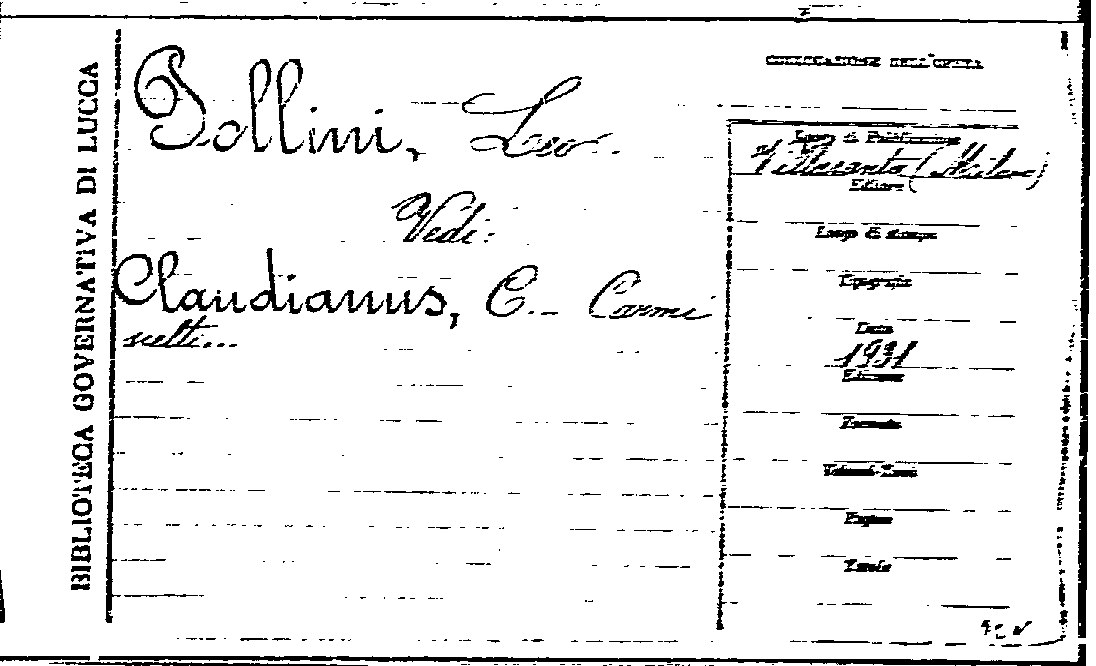 BIBLIOTECA GOVERNATIVA DI LUCCA
Pollini, Leo.
Vedi:
Claudianus, C. - Carmi
scelti...
COLLOCAZIONE DELL'OPERA
Luogo di Pubblicazione
Villasanta (Milano)
Editore
Luogo di stampa
Tipografia
Data
1931
Edizione
Formato
Volumi-Tomi
Pagine
Tavole